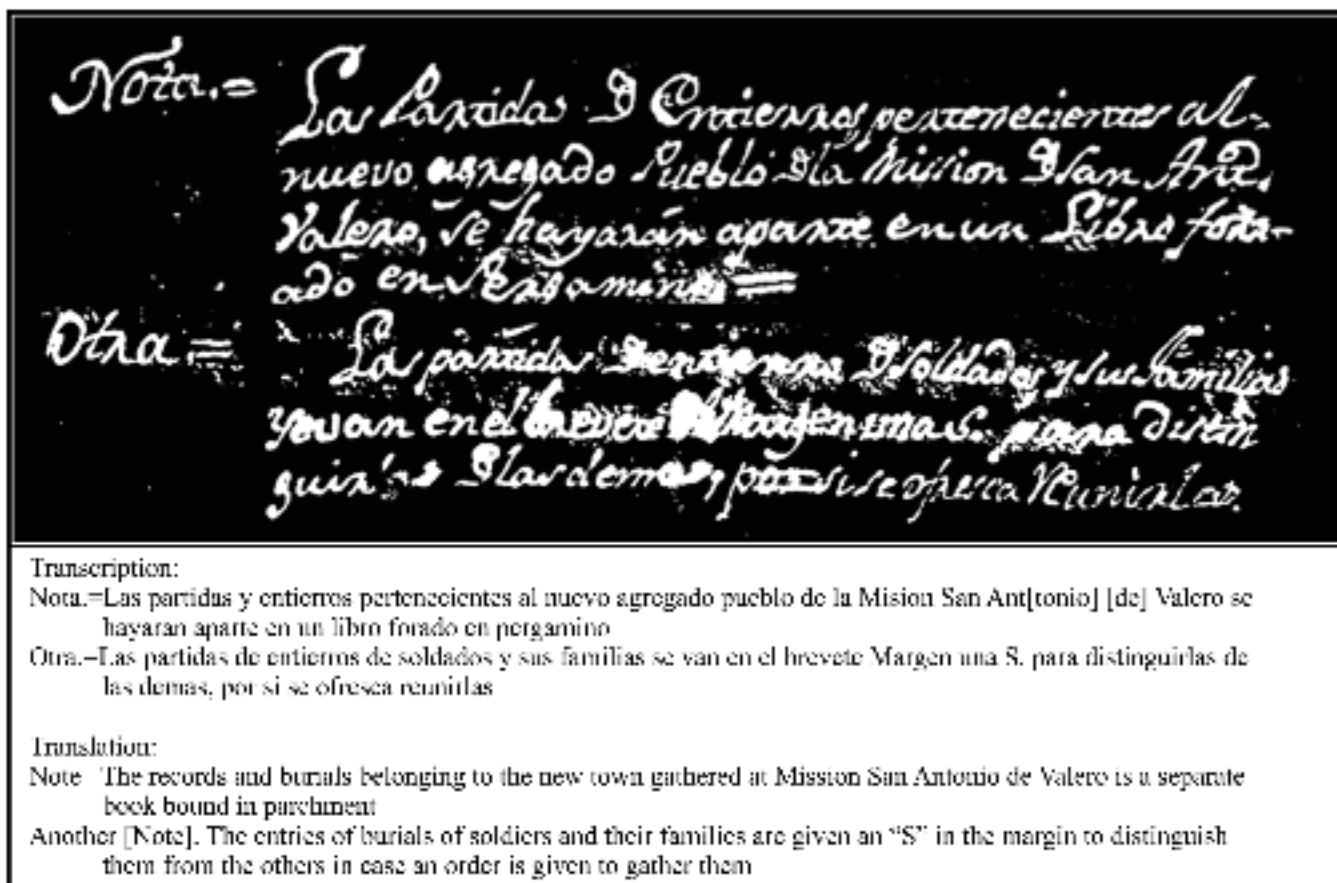 Nota.=
Las Partidas D Entierros pertenecientes al-
nuevo agregado Pueblo Dla Mission D San Antº.
Valero, se hayarán aparte en un Libro forr-
ado en Pergamino =
Otra.=
Las partidas D entierros D Soldados y sus familias
en el brevete Margen una S. para distin
guir D las demas, por si se ofresca reunirlas.
Transcription:
Nota.=Las partidas y entierros pertenecientes al nuevo agregado pueblo de la Mision San Ant[tonio] [de] Valero se
hayaran aparte en un libro forado en pergamino
Otra.=Las partidas de entierros de soldados y sus familias se van en el brevete Margen una S. para distinguirlas de
las demas, por si se ofresca reunirlas
Translation:
Note The records and burials belonging to the new town gathered at Mission San Antonio de Valero is a separate
book bound in parchment
Another [Note]. The entries of burials of soldiers and their families are given an “S” in the margin to distinguish
them from the others in case an order is given to gather them